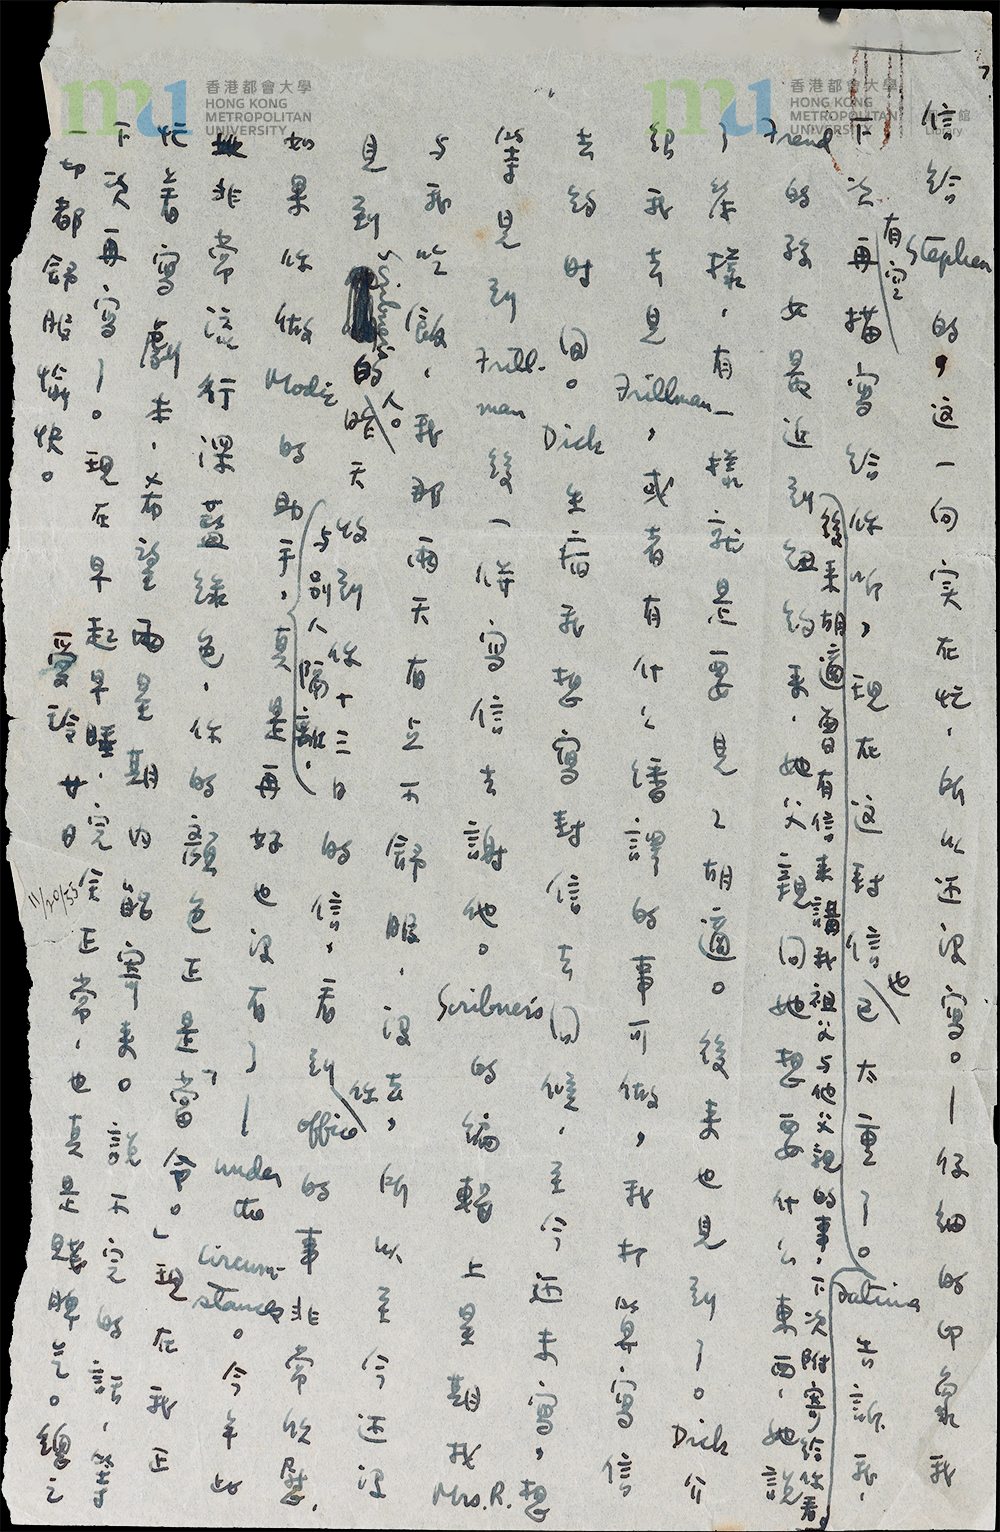 香港都會大學
HONG KONG
METROPOLITAN
UNIVERSITY
香港都會大學
HONG KONG
METROPOLITAN
UNIVERSITY
館
Library
7
信给Stephen的,这一向实在忙,所以还没寫。—仔细的印象我
下次有空再描寫给你听,現在这封信也已太重了。Fatima告訴我,
後来胡適曾有信来講我祖父与他父親的事,下次附寄给你看。
Freud的孫女最近到纽约来,她父親问她想要什么東西,她说
了幾樣,有一樣就是要見見胡適。後来也見到了。Dick介
绍我去見Frillman,或者有什么繙譯的事可做,我打算寫信
去约时间。Dick生病我想寫封信去问候,至今还未寫,想
等見到Frillman後一併寫信去謝他。Scribner's的编輯上星期找Mrs.R.
与我吃飯,我那兩天有点不舒服,没去,所以至今还没
見到Scribner's的人。昨天收到你十三日的信,看到你office的事非常欣慰,
如果你做Modic的助手,与別人隔離,真是再好也没有了—under the circumstances。今年此
地非常流行深藍綠色,你的顏色正是「當令。」現在我正
忙着寫劇本,希望兩星期内能寄来。説不完的話,等
下次再寫了。現在早起早睡,完全正常,也真是賤脾气。總之
一切都舒服愉快。
愛玲 廿日
11/20/55